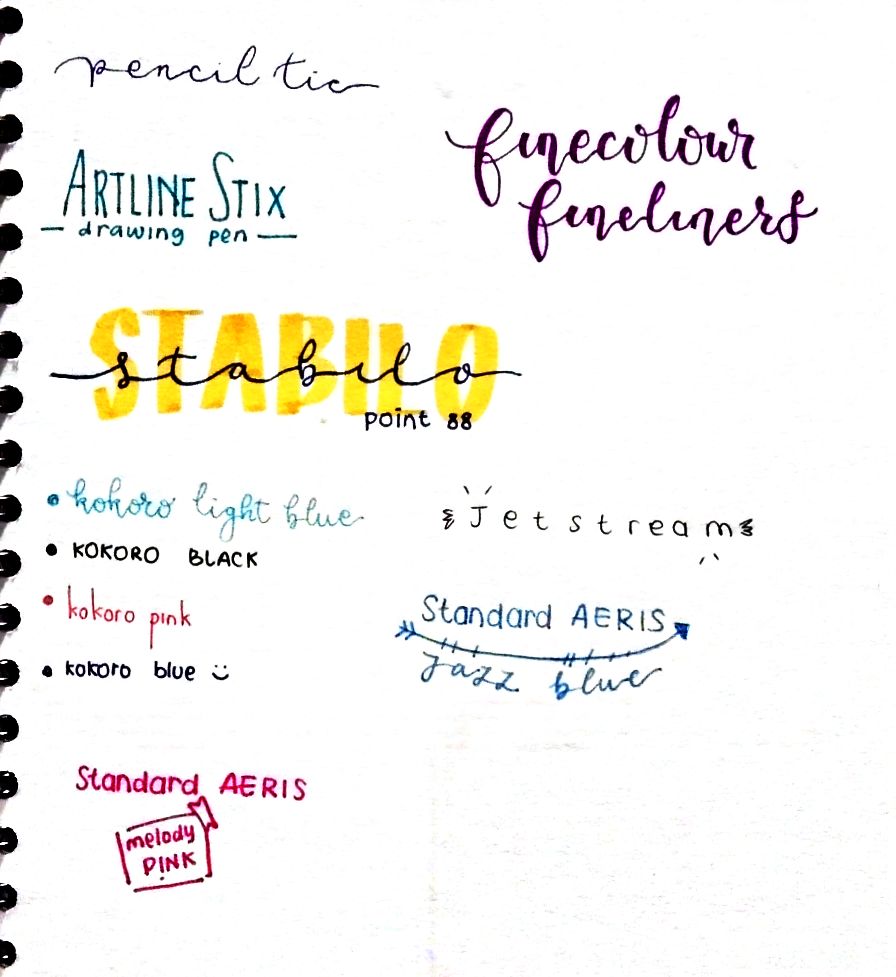 pencil tic
finecolour
fineliners
ARTLINE STIX
drawing pen
STABILO
stabilo
point 88
kokoro light blue
KOKORO BLACK
kokoro pink
kokoro blue
Jetstream
Standard AERIS
jazz blue
Standard AERIS
melody
PINK